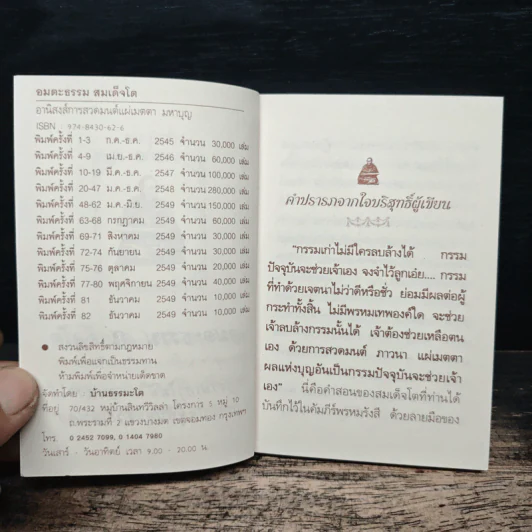 อมตะธรรม สมเด็จโต
อานิสงส์การสวดมนต์แผ่เมตตา มหาบุญ
ISBN : 974-8430-62-6
พิมพ์ครั้งที่ 1-3 ก.ค.-ธ.ค. 2545 จำนวน 30,000 เล่ม
พิมพ์ครั้งที่ 4-9 เม.ย.-ธ.ค. 2546 จำนวน 60,000 เล่ม
พิมพ์ครั้งที่ 10-19 มี.ค.-ธ.ค. 2547 จำนวน 100,000 เล่ม
พิมพ์ครั้งที่ 20-47 ม.ค.-ธ.ค. 2548 จำนวน 280,000 เล่ม
พิมพ์ครั้งที่ 48-62 ม.ค.-มิ.ย. 2549 จำนวน 150,000 เล่ม
พิมพ์ครั้งที่ 63-68 กรกฎาคม 2549 จำนวน 60,000 เล่ม
พิมพ์ครั้งที่ 69-71 สิงหาคม 2549 จำนวน 30,000 เล่ม
พิมพ์ครั้งที่ 72-74 กันยายน 2549 จำนวน 30,000 เล่ม
พิมพ์ครั้งที่ 75-76 ตุลาคม 2549 จำนวน 20,000 เล่ม
พิมพ์ครั้งที่ 77-80 พฤศจิกายน 2549 จำนวน 40,000 เล่ม
พิมพ์ครั้งที่ 81 ธันวาคม 2549 จำนวน 10,000 เล่ม
พิมพ์ครั้งที่ 82 ธันวาคม 2549 จำนวน 10,000 เล่ม
● สงวนลิขสิทธิ์ตามกฎหมาย
พิมพ์เพื่อแจกเป็นธรรมทาน
ห้ามพิมพ์เพื่อจำหน่ายเด็ดขาด
จัดทำโดย : บ้านธรรมะโต
ที่อยู่ 70/432 หมู่บ้านสินทวีวิลล่า โครงการ 5 หมู่ 10
ถ.พระรามที่ 2 แขวงบางมด เขตจอมทอง กรุงเทพฯ
โทร. 0 2452 7099, 0 1404 7980
วันเสาร์ - วันอาทิตย์ เวลา 9.00 - 20.00 น.
คำปรารภจากใจบริสุทธิ์ผู้เขียน
"กรรมเก่าไม่มีใครลบล้างได้ กรรม
ปัจจุบันจะช่วยเจ้าเอง จงจำไว้ลูกเอ๋ย.... กรรม
ที่ทำด้วยเจตนาไม่ว่าดีหรือชั่ว ย่อมมีผลต่อผู้
กระทำทั้งสิ้น ไม่มีพรหมเทพองค์ใด จะช่วย
เจ้าลบล้างกรรมนั้นได้ เจ้าต้องช่วยเหลือตน
เอง ด้วยการสวดมนต์ ภาวนา แผ่เมตตา
ผลแห่งบุญอันเป็นกรรมปัจจุบันจะช่วยเจ้า
เอง" นี่คือคำสอนของสมเด็จโตที่ท่านได้
บันทึกไว้ในคัมภีร์พรหมรังสี ด้วยลายมือของ